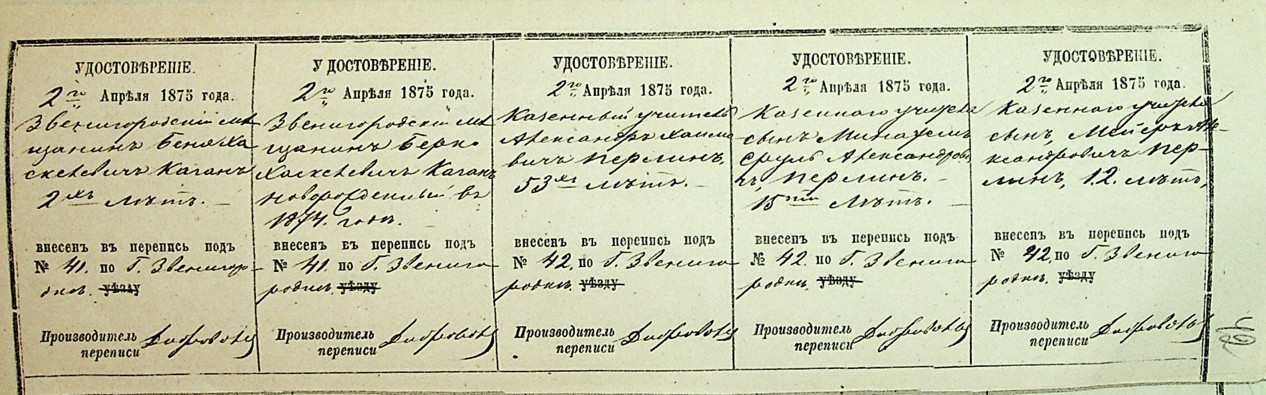 УДОСТОВѢРЕНІЕ.
2го Апрѣля 1875 года.
Звенигородскій мѣ-
щанинъ Беня Ха-
скелевичъ Каганъ
2хъ лѣтъ. —
внесенъ въ перепись подъ
№ 41. по Г. Звениго-
родкѣ. уѣзду
Производитель
переписи
УДОСТОВѢРЕНІЕ.
2го Апрѣля 1875 года.
Звенигородскій мѣ-
щанинъ Берко
Хаскелевичъ Каганъ
новорожденный въ
1874. году.
внесенъ въ перепись подъ
№ 41. по Г. Звениго-
родкѣ. уѣзду
Производитель
переписи
УДОСТОВѢРЕНІЕ.
2го Апрѣля 1875 года.
Казенный учитель
Александръ Хаимо-
вичъ Перлинъ,
53хъ лѣтъ. —
внесенъ въ перепись подъ
№ 42. по Г. Звениго-
родкѣ. уѣзду
Производитель
переписи
УДОСТОВѢРЕНІЕ.
2го Апрѣля 1875 года.
Казеннаго учителя
сынъ
Сруль Александрови-
чъ, Перлинъ. —
15ти лѣтъ. —
внесенъ въ перепись подъ
№ 42. по Г. Звениго-
родкѣ. уѣзду
Производитель
переписи
УДОСТОВѢРЕНІЕ.
2го Апрѣля 1875 года.
Казеннаго учителя
сынъ, Мейеръ Але-
ксандровичъ Пер-
линъ, 12. лѣтъ,
внесенъ въ перепись подъ
№ 42. по Г. Звениго-
родкѣ. уѣзду
Производитель
переписи